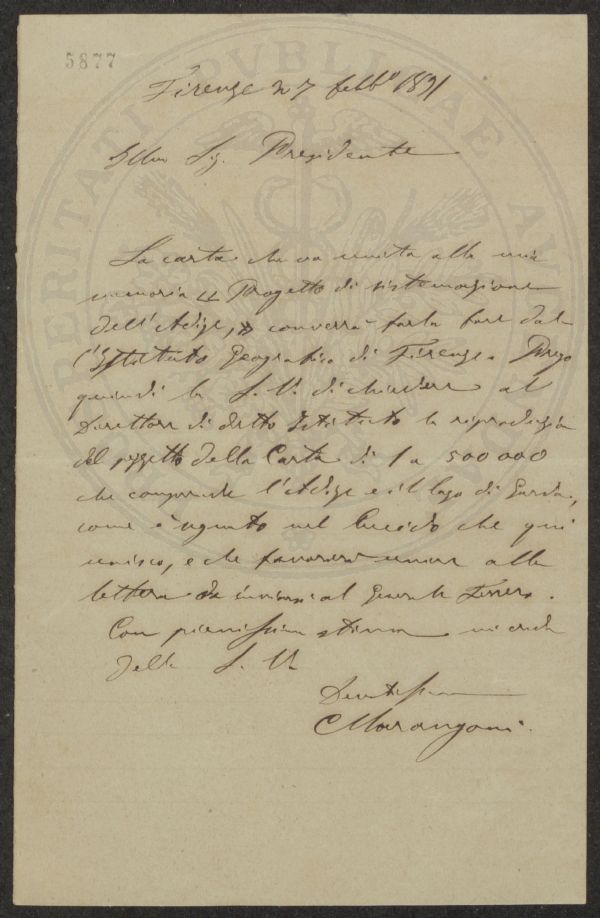 5877
Firenze 27 febb° 1891
Illmo Sig. Presidente
La carta che va unita alla mia
memoria « Progetto di sistemazione
dell'Adige, » converrà farla fare dal-
l'Istituto Geografico di Firenze. Prego
quindi la S. V. di chiedere al
Direttore di detto Istituto la riproduzione
del pezzetto della Carta di 1 a 500 000
che comprende l'Adige e il lago di Garda,
come è segnato nel lucido che qui
unisco, e che favorirà unire alla
lettera da inviarsi al Generale Ferrero.
Con pienissima stima mi creda
della S. V.
Devotissimo
C Marangoni.
PERITATI PVBLICAE